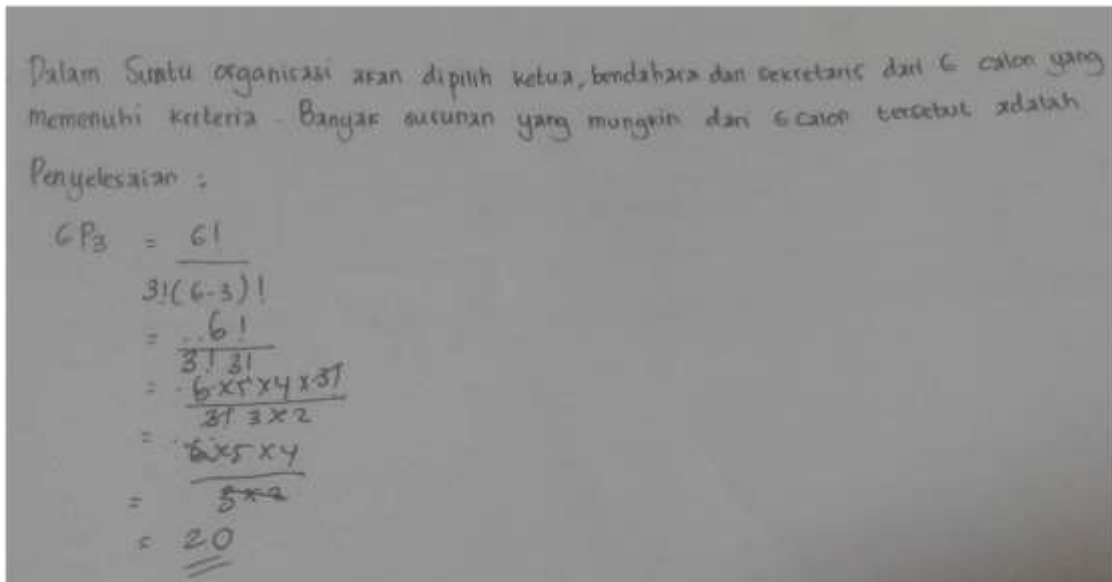 Dalam Suatu organisasi akan dipilih ketua, bendahara dan sekretaris dari 6 calon yang
memenuhi kriteria. Banyak susunan yang mungkin dari 6 calon tersebut adalah
Penyelesaian :
6P3 = 6!
3!(6-3)!
= 6!
3! 3!
= 6×5×4×3!
3! 3×2
= 6×5×4
= 3×2
= 20